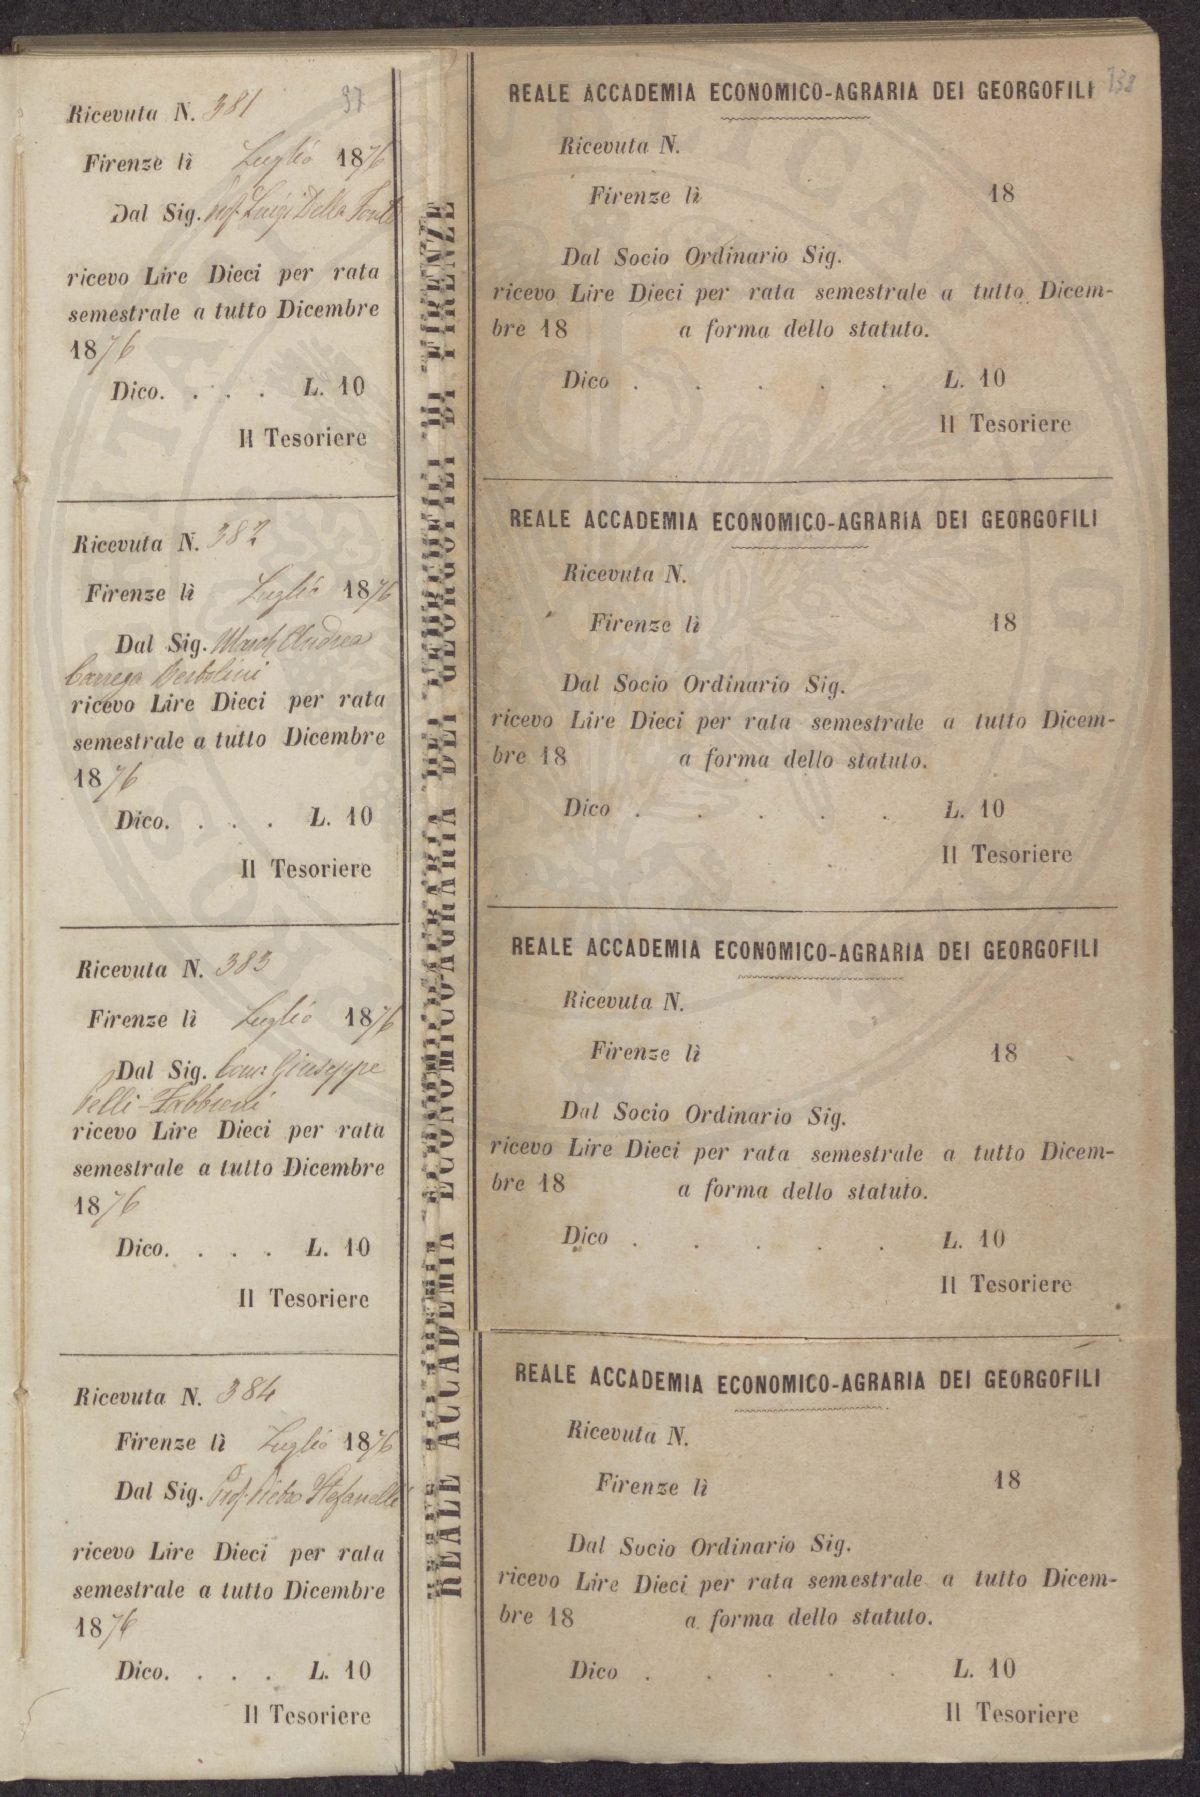 Ricevuta N. 381
97
Firenze lì Luglio 1876
Dal Sig. Prof. Luigi Della Fonte
ricevo Lire Dieci per rata
semestrale a tutto Dicembre
1876
Dico. . . . L. 10
Il Tesoriere
Ricevuta N. 382
Firenze lì Luglio 1876
Dal Sig. March Andrea
Carrega Bertolini
ricevo Lire Dieci per rata
semestrale a tutto Dicembre
1876
Dico. . . . L. 10
Il Tesoriere
Ricevuta N. 383
Firenze lì Luglio 1876
Dal Sig. Com: Giuseppe
Pelli-Fabbroni
ricevo Lire Dieci per rata
semestrale a tutto Dicembre
1876
Dico. . . . L. 10
Il Tesoriere
Ricevuta N. 384
Firenze lì Luglio 1876
Dal Sig. Prof. Pietro Stefanelli
ricevo Lire Dieci per rata
semestrale a tutto Dicembre
1876
Dico. . . . L. 10
Il Tesoriere
REALE ACCADEMIA ECONOMICO-AGRARIA DEI GEORGOFILI DI FIRENZE
REALE ACCADEMIA ECONOMICO-AGRARIA DEI GEORGOFILI
138
Ricevuta N.
Firenze lì 18
Dal Socio Ordinario Sig.
ricevo Lire Dieci per rata semestrale a tutto Dicem-
bre 18 a forma dello statuto.
Dico . . . . . L. 10
Il Tesoriere
REALE ACCADEMIA ECONOMICO-AGRARIA DEI GEORGOFILI
Ricevuta N.
Firenze lì 18
Dal Socio Ordinario Sig.
ricevo Lire Dieci per rata semestrale a tutto Dicem-
bre 18 a forma dello statuto.
Dico . . . . . L. 10
Il Tesoriere
REALE ACCADEMIA ECONOMICO-AGRARIA DEI GEORGOFILI
Ricevuta N.
Firenze lì 18
Dal Socio Ordinario Sig.
ricevo Lire Dieci per rata semestrale a tutto Dicem-
bre 18 a forma dello statuto.
Dico . . . . . L. 10
Il Tesoriere
REALE ACCADEMIA ECONOMICO-AGRARIA DEI GEORGOFILI
Ricevuta N.
Firenze lì 18
Dal Socio Ordinario Sig.
ricevo Lire Dieci per rata semestrale a tutto Dicem-
bre 18 a forma dello statuto.
Dico . . . . . L. 10
Il Tesoriere